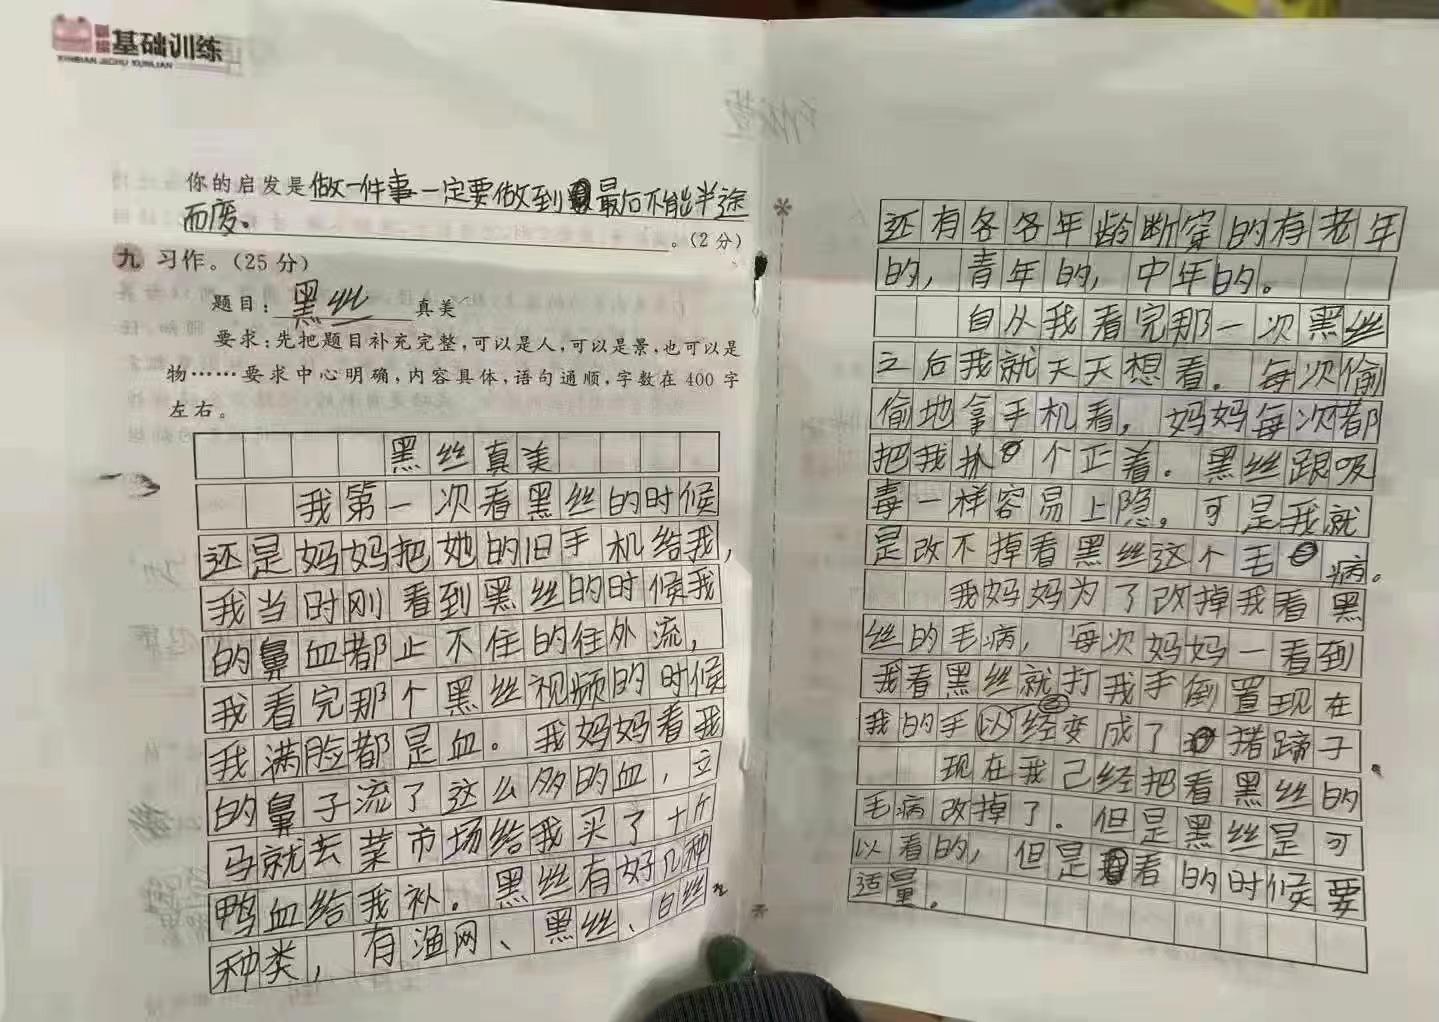 新编
基础训练
XINBIAN JICHU XUNLIAN
你的启发是做一件事一定要做到最后不能半途
而废。。(2分)
九 习作。(25分)
题目:黑丝真美
要求:先把题目补充完整,可以是人,可以是景,也可以是
物……要求中心明确,内容具体,语句通顺,字数在400字
左右。
黑丝真美
我第一次看黑丝的时候
还是妈妈把她的旧手机给我,
我当时刚看到黑丝的时候我
的鼻血都止不住的往外流,
我看完那个黑丝视频的时候
我满脸都是血。我妈妈看我
的鼻子流了这么多的血,立
马就去菜市场给我买了十斤
鸭血给我补。黑丝有好几种
种类,有渔网、黑丝、白丝
还有各各年龄断穿的有老年
的,青年的,中年的。
自从我看完那一次黑丝
之后我就天天想看。每次偷
偷地拿手机看,妈妈每次都
把我抓个正着。黑丝跟吸
毒一样容易上隐,可是我就
是改不掉看黑丝这个毛病。
我妈妈为了改掉我看黑
丝的毛病,每次妈妈一看到
我看黑丝就打我手倒置现在
我的手以经变成了猪蹄子
现在我己经把看黑丝的
毛病改掉了.但是黑丝是可
以看的,但是看的时候要
适量。